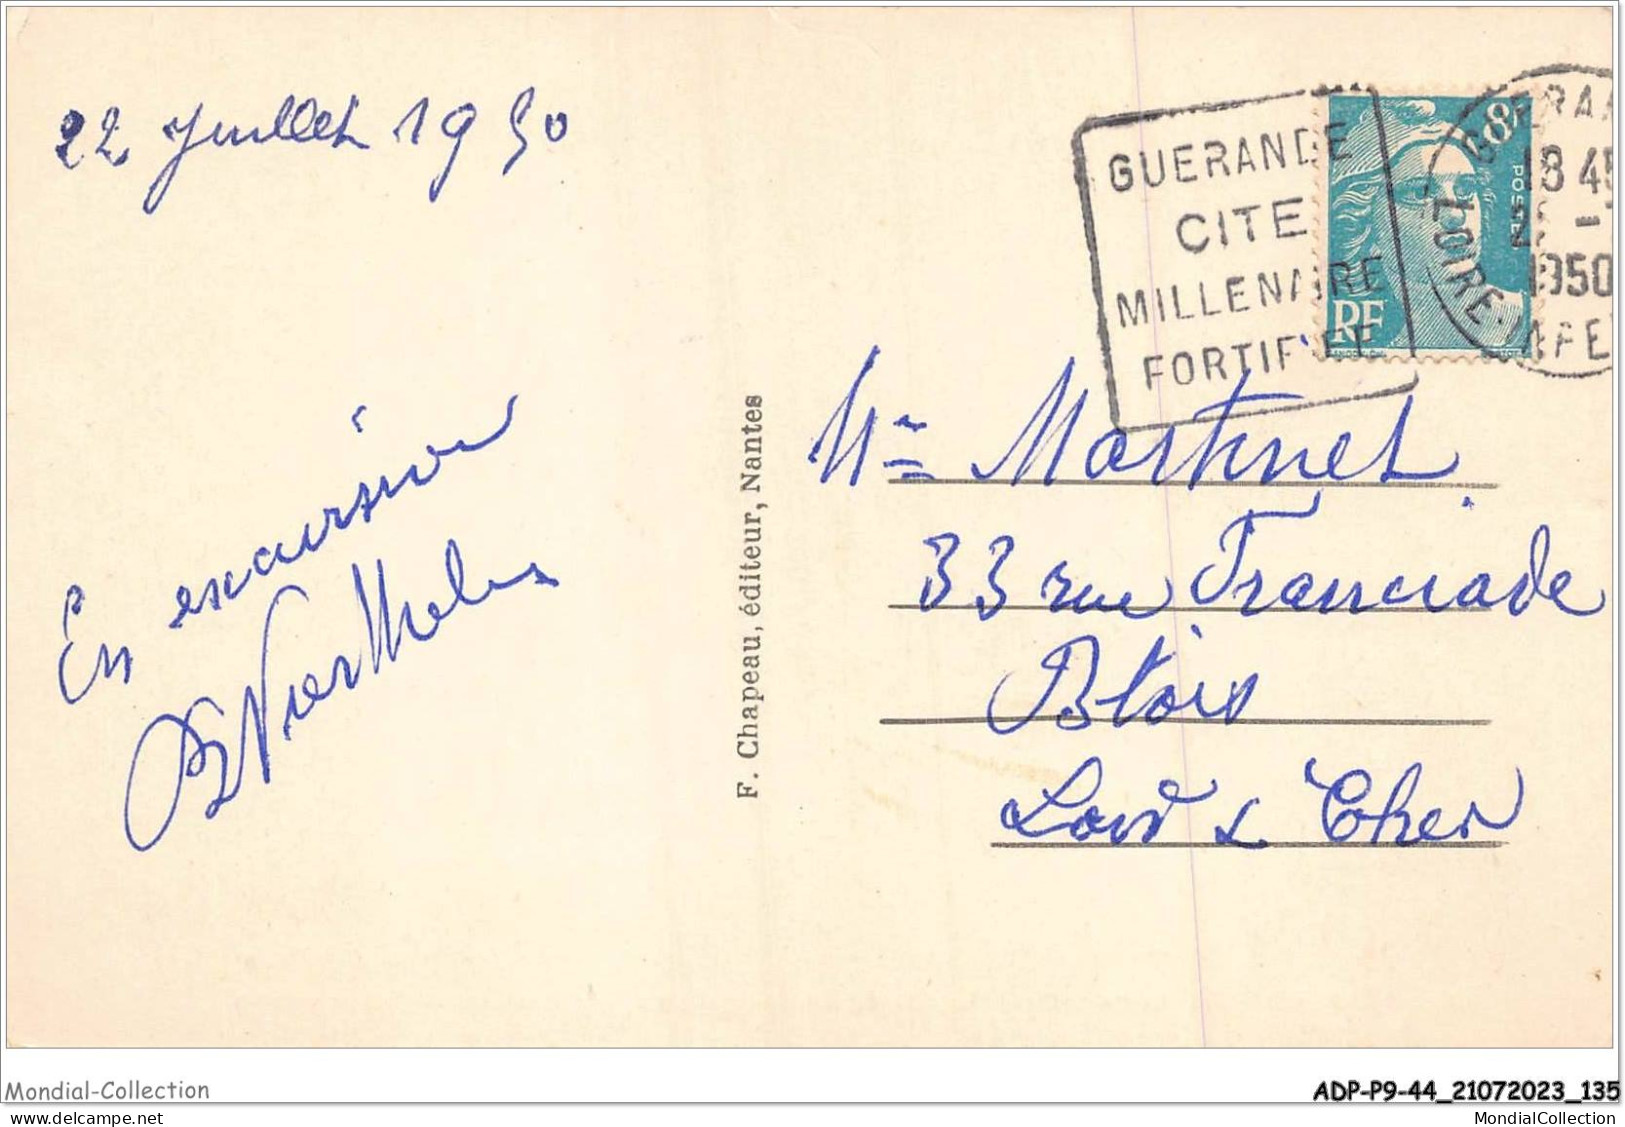 22 Juillet 1950
En excursion
GUERANDE
CITE
MILLENAIRE
FORTIFIEE
8F
POSTES
RF
18 45
1950
LOIRE-INFE
F. Chapeau, éditeur, Nantes
Mme Martinet
33 rue Franciade
Blois
Loir & Cher
Mondial-Collection
ADP-P9-44_21072023_135
delcampe.net
MondialCollection